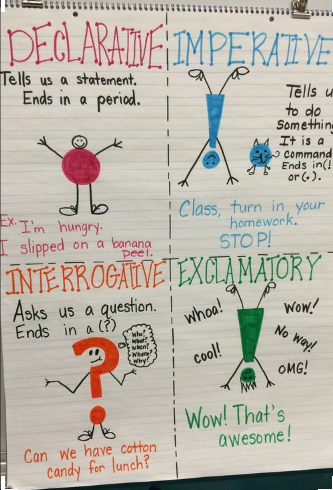 DECLARATIVE
Tells us a statement.
Ends in a period.
Ex. I'm hungry.
I slipped on a banana
peel.
IMPERATIVE
Tells u
to do
Something
It is a
command
Ends in (!)
or (.).
Class, turn in your
homework.
STOP!
INTERROGATIVE
Asks us a question.
Ends in a (?)
Who?
What?
When?
Where?
Why?
Can we have cotton
candy for lunch?
EXCLAMATORY
Whoa!
Wow!
No way!
cool!
OMG!
Wow! That's
awesome!